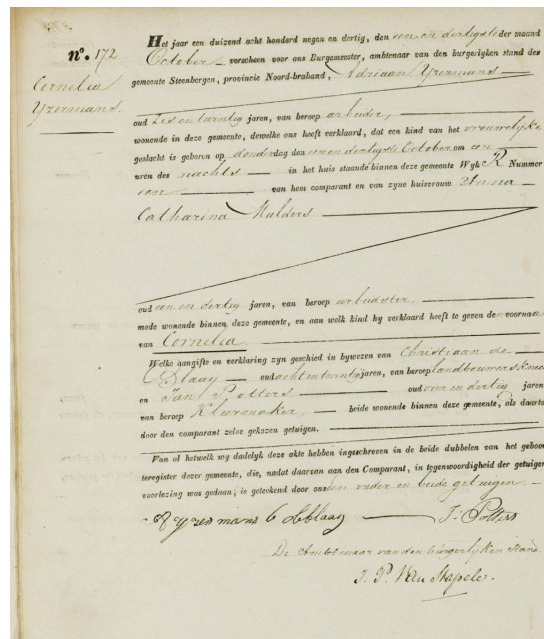 nº. 172
Cornelia
Yzermans
Het jaar een duizend acht honderd negen en dertig, den een en dertigste der maand
October verscheen voor ons Burgemeester, ambtenaar van den burgerlyken stand des
gemeente Steenbergen, provincie Noord-braband, Adriaan Yzermans
oud zes en twintig jaren, van beroep arbeider,
wonende in deze gemeente, dewelke ons heeft verklaard, dat een kind van het vrouwelyke
geslacht is geboren op donderdag den een en dertigste October om een
uren des nachts in het huis staande binnen deze gemeente Wyk R Nummer
een van hem comparant en van zyne huisvrouw Anna
Catharina Mulders
oud een en dertig jaren, van beroep arbeidster
mede wonende binnen deze gemeente, en aan welk kind hy verklaard heeft te geven den voornaam
van Cornelia
Welke aangifte en verklaring zyn geschied in bywezen van Christiaan de
Blaay oud acht en twintig jaren, van beroep landbouwersknecht
en Jan Potters oud vier en dertig jaren
van beroep Kleermaker, beide wonende binnen deze gemeente, als daartoe
door den comparant zelve gekozen getuigen.
Van al hetwelk wy dadelyk deze akte hebben ingeschreven in de beide dubbelen van het geboor-
teregister dezer gemeente, die, nadat daarvan aan den Comparant, in tegenwoordigheid der getuigen
voorlezing was gedaan, is geteekend door ons den vader en beide getuigen.
A yzermans C deblaay J. Potters
De Ambtenaar van den burgerlyken Stand.
J. P. Van Stapele.